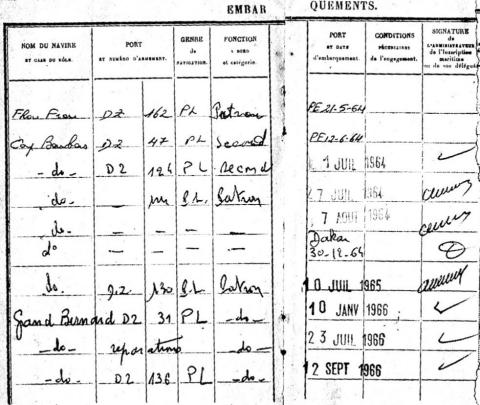 EMBAR QUEMENTS.
NOM DU NAVIRE PORT GENRE FONCTION PORT CONDITIONS SIGNATURE
ET CASE DU RÔLE. ET NUMÉRO D'ARMEMENT. de NAVIGATION. A BORD et catégorie. ET DATE d'embarquement. PÉCUNIAIRES de l'engagement. DE L'ADMINISTRATEUR de l'Inscription maritime ou de son délégué
DZ 162 PL Patron PE 21-5-64
Cap DZ 47 PL Second PE 12-6-64
-do- DZ 124 PL Second 1 JUIL 1964
-do- PL. Patron 7 JUIL 1964
do - - - - 7 AOUT 1964
do - - - - Dakar 30-12-64
do- 130 PL Patron 10 JUIL 1965
Grand Bernard DZ 31 PL -do- 10 JANV 1966
-do- réparations -do- 23 JUIL 1966
-do- DZ 136 PL -do- 12 SEPT 1966